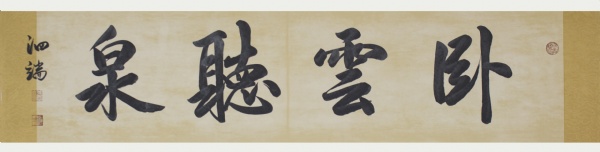 臥雲聽泉
泗端